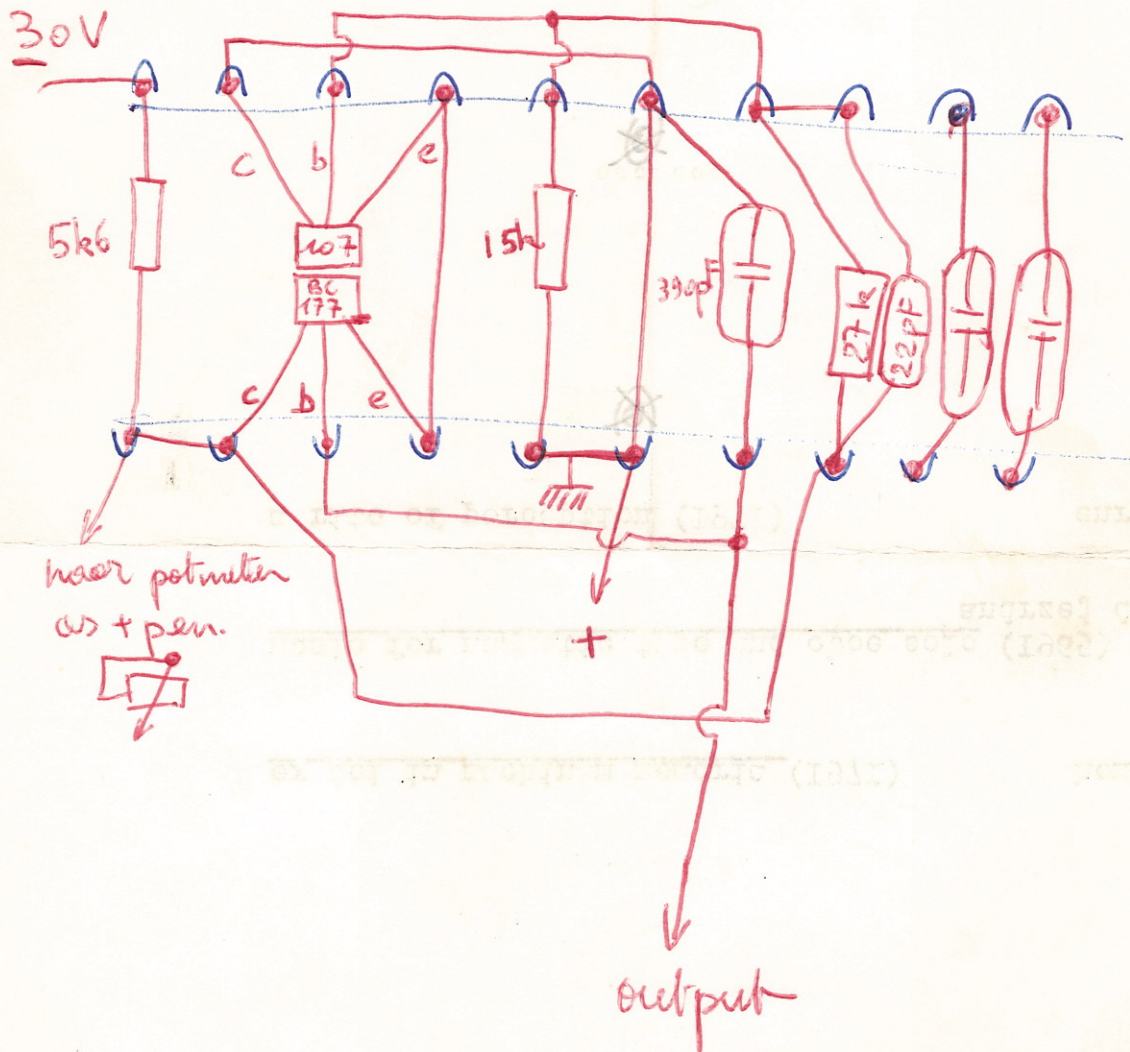 30V
c
b
e
5k6
107
BC
177
15k
390pF
27k
22pF
c
b
e
naar potmeter
as + pen.
+
output